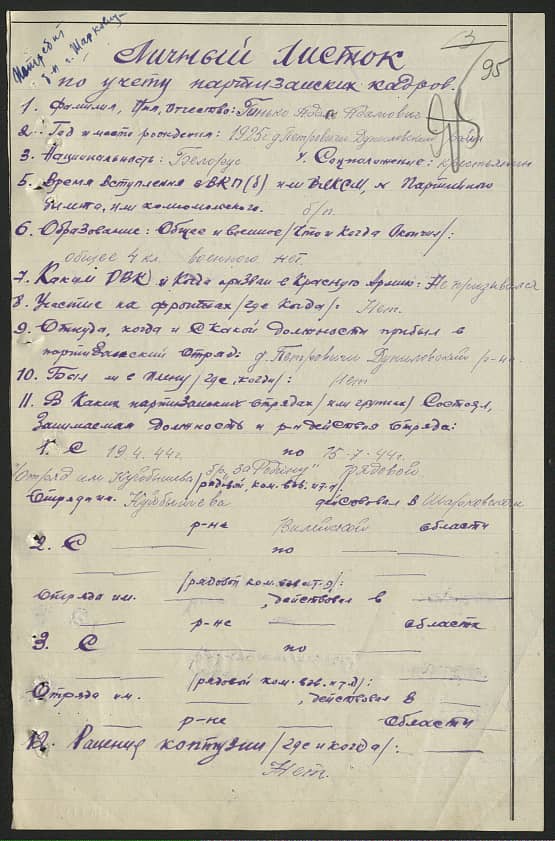 Истребит
б-н г. Шарковщ
13
95
Личный Листок
по учету партизанских кадров.
1. Фамилия, Имя, Отчество: Адам Адамович
95
2. Год и место рождения: 1925 г д. Петровичи Дуниловский район
3. Национальность: Белорус 4. Соцположение: крестьянин
5. Время вступления в ВКП(б) или ВЛКСМ, № Партийного
билета, или комсомольского. б/п.
6. Образование: Общее и военное/Что и когда окончил/:
общее 4 кл. военного нет.
7. Каким РВК и когда призван в Красную Армию: Не призывался
8. Участие на фронтах/где когда/: Нет.
9. Откуда, когда и с какой должности прибыл в
партизанский отряд: д. Петровичи Дуниловский р-н.
10. Был ли в плену/где, когда/: Нет
11. В каких партизанских отрядах/или группах/ состоял,
Занимаемая должность и р-н действия отряда:
1. С 19.4.44г. по 15.7.44г.
"Отряд им Куйбышева/бр. "За Родину" рядовой
/рядовой, ком. взв. и т.д/
Отряда им. Куйбышева действовал в Шарковском
р-не Вилейской области
2. С по
/рядовой ком. взв. и т.д/:
Отряда им. , действовал в
р-не области
3. С по
/рядовой ком. взв. и т.д/:
Отряда им. , действовал в
р-не области
12. Ранения контузии/где и когда/:
Нет.